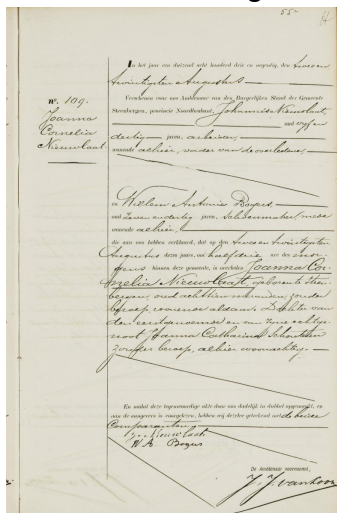 55
In het jaar een duizend acht honderd drie en negentig, den twee en
twintigsten Augustus
Verscheen voor ons Ambtenaar van den Burgerlijken Stand der Gemeente
Steenbergen, provincie Noordbrabant, Johannis Nieuwlaat,
oud vijf en
dertig jaren, arbeider,
wonende alhier, vader van de overledene,
No. 109.
Joanna
Cornelia
Nieuwlaat.
en Willem Antonie Bogers
oud zeven en dertig jaren, schoenmaker, mede
wonende alhier,
die aan ons hebben verklaard, dat op den twee en twintigsten
Augustus dezes jaars, ten half drie ure des mor-
gens binnen deze gemeente, is overleden Joanna Cor-
nelia Nieuwlaat, geboren te Steen-
bergen, oud achttien maanden, zonder
beroep, wonende alhier. Dochter van
den eerstgenoemde en van zijne echtge-
noot Johanna Catharina
zonder beroep, alhier woonachtig.
En nadat deze tegenwoordige akte door ons dadelijk in dubbel opgemaakt, en
aan de aangevers is voorgelezen, hebben wij dezelve geteekend met de beide
Comparanten
J. Nieuwlaat
W A Bogers
De Ambtenaar voornoemd,
J. J. van Loon